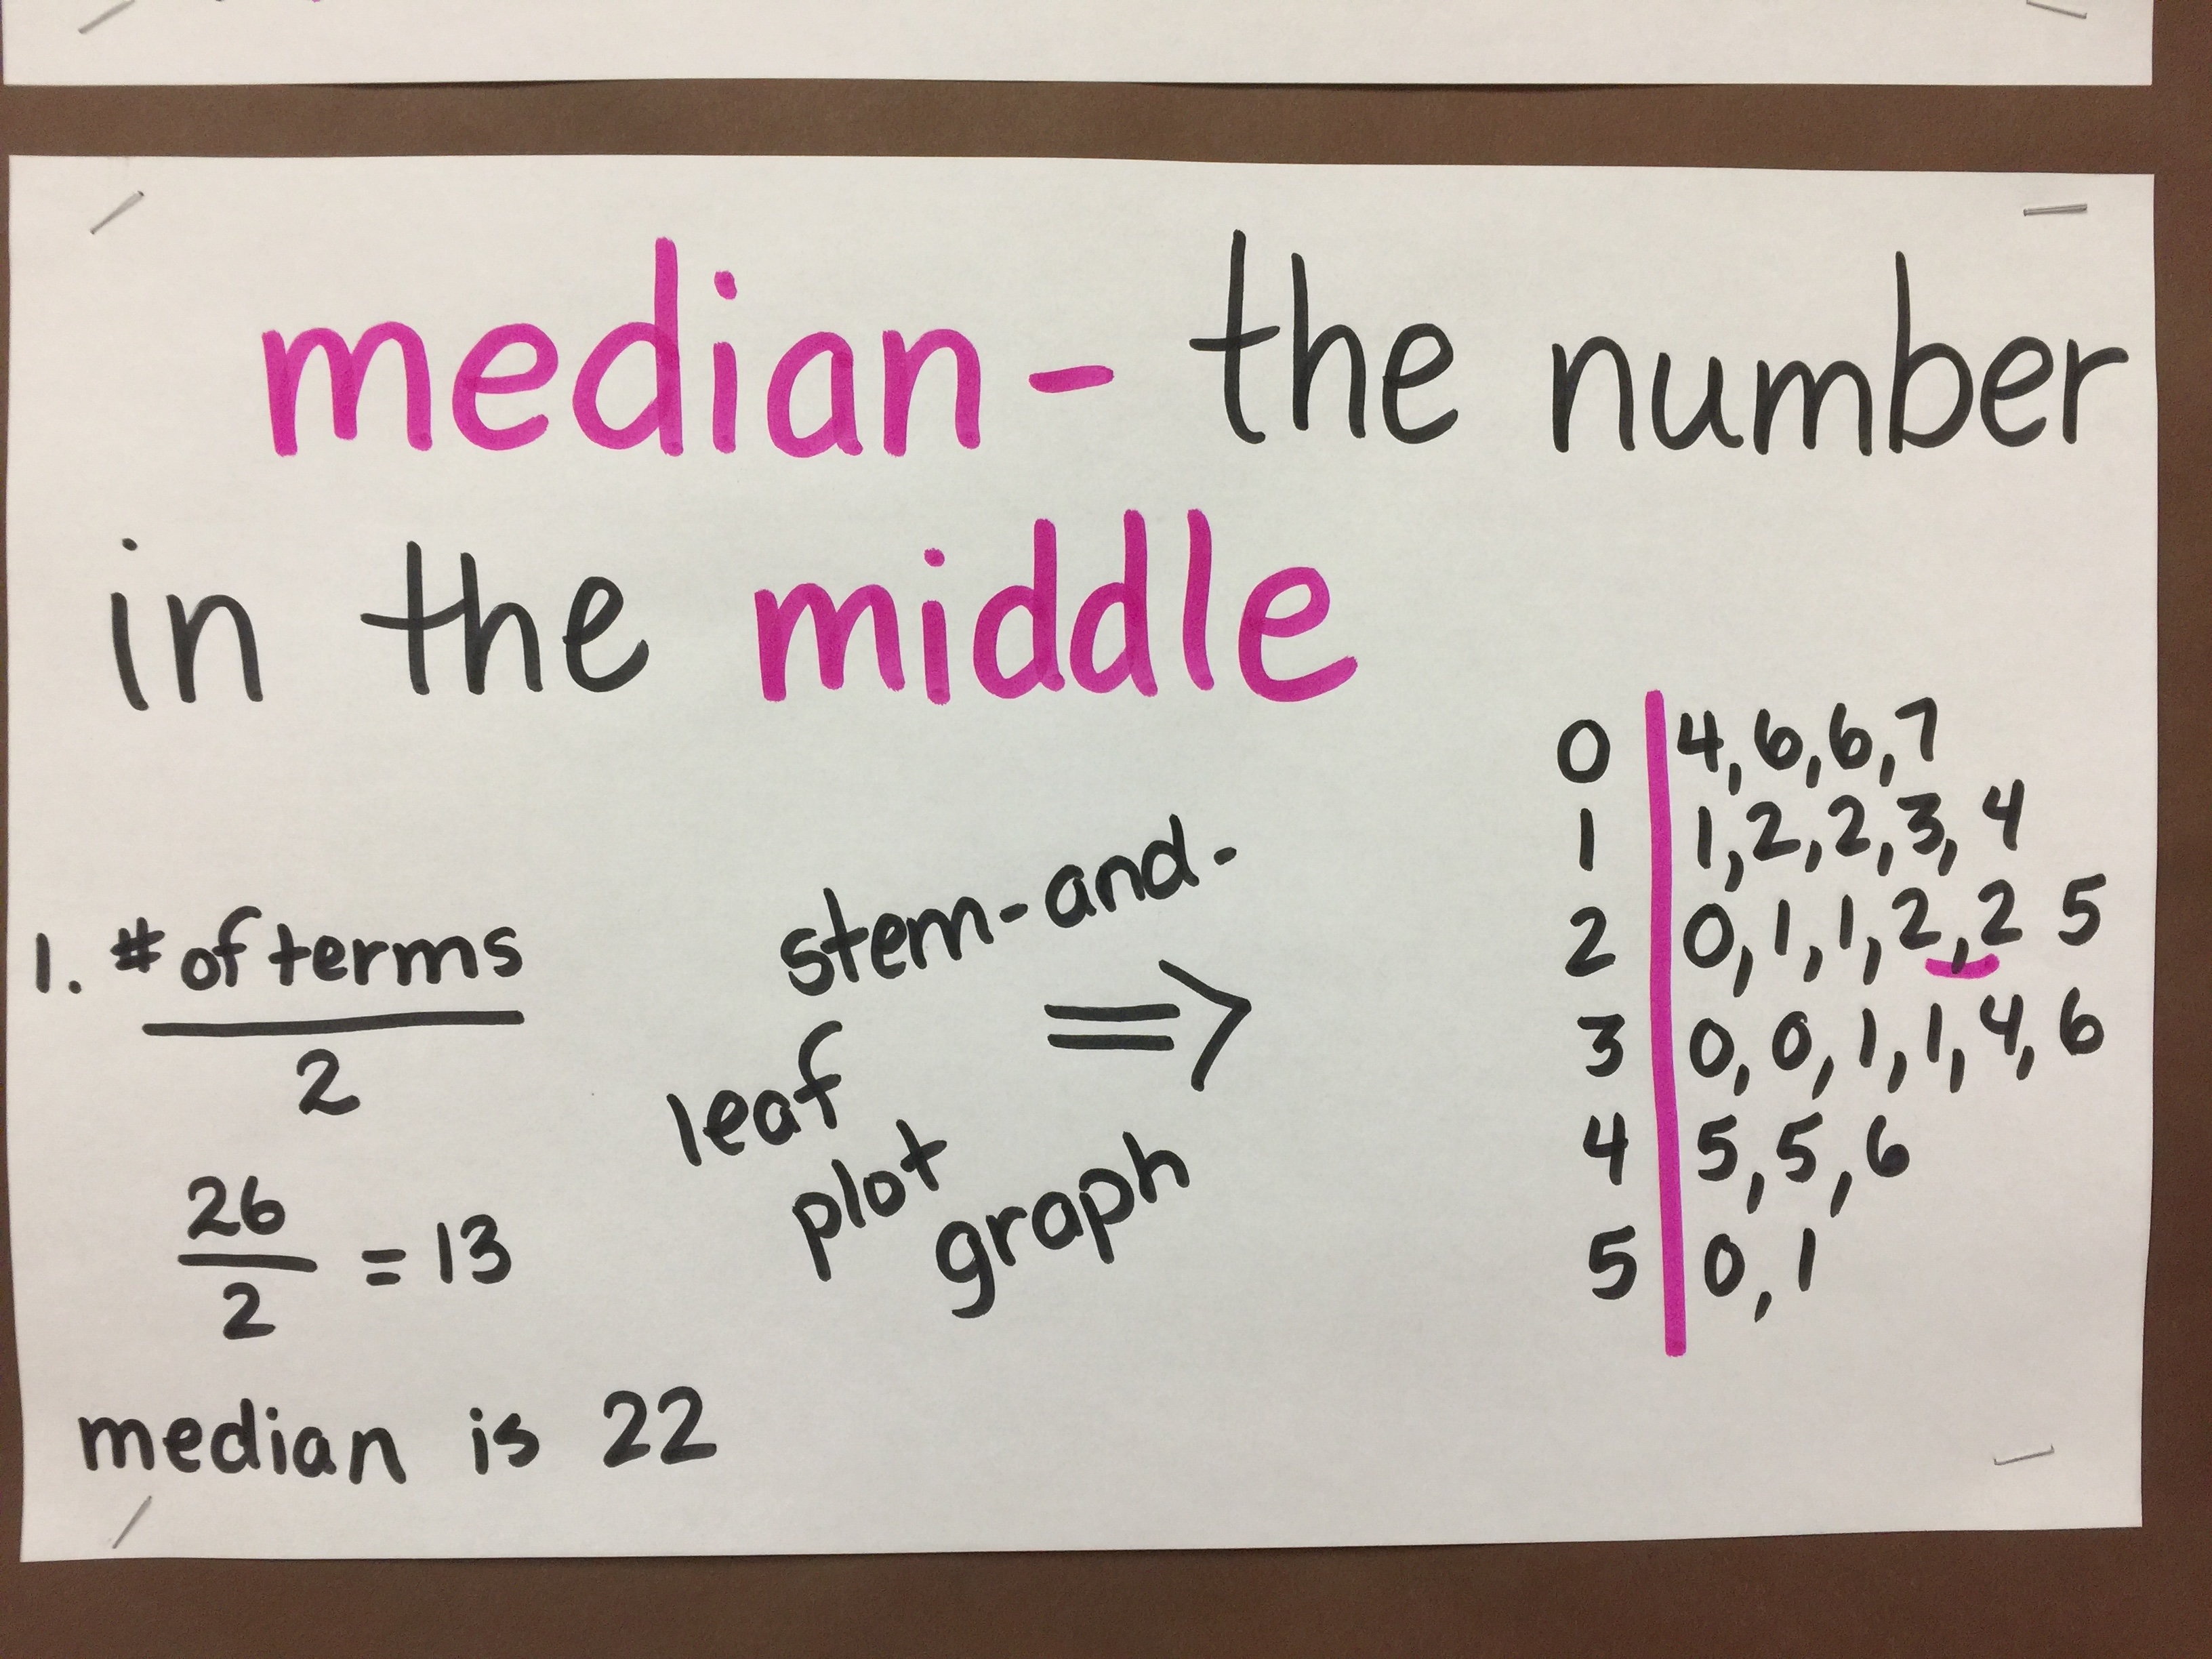 median - the number
in the middle
1. # of terms
2
26
2
= 13
median is 22
stem-and-
leaf
plot
graph
=>
0 | 4, 6, 6, 7
1 | 1, 2, 2, 3, 4
2 | 0, 1, 1, 2, 2 5
3 | 0, 0, 1, 1, 4, 6
4 | 5, 5, 6
5 | 0, 1